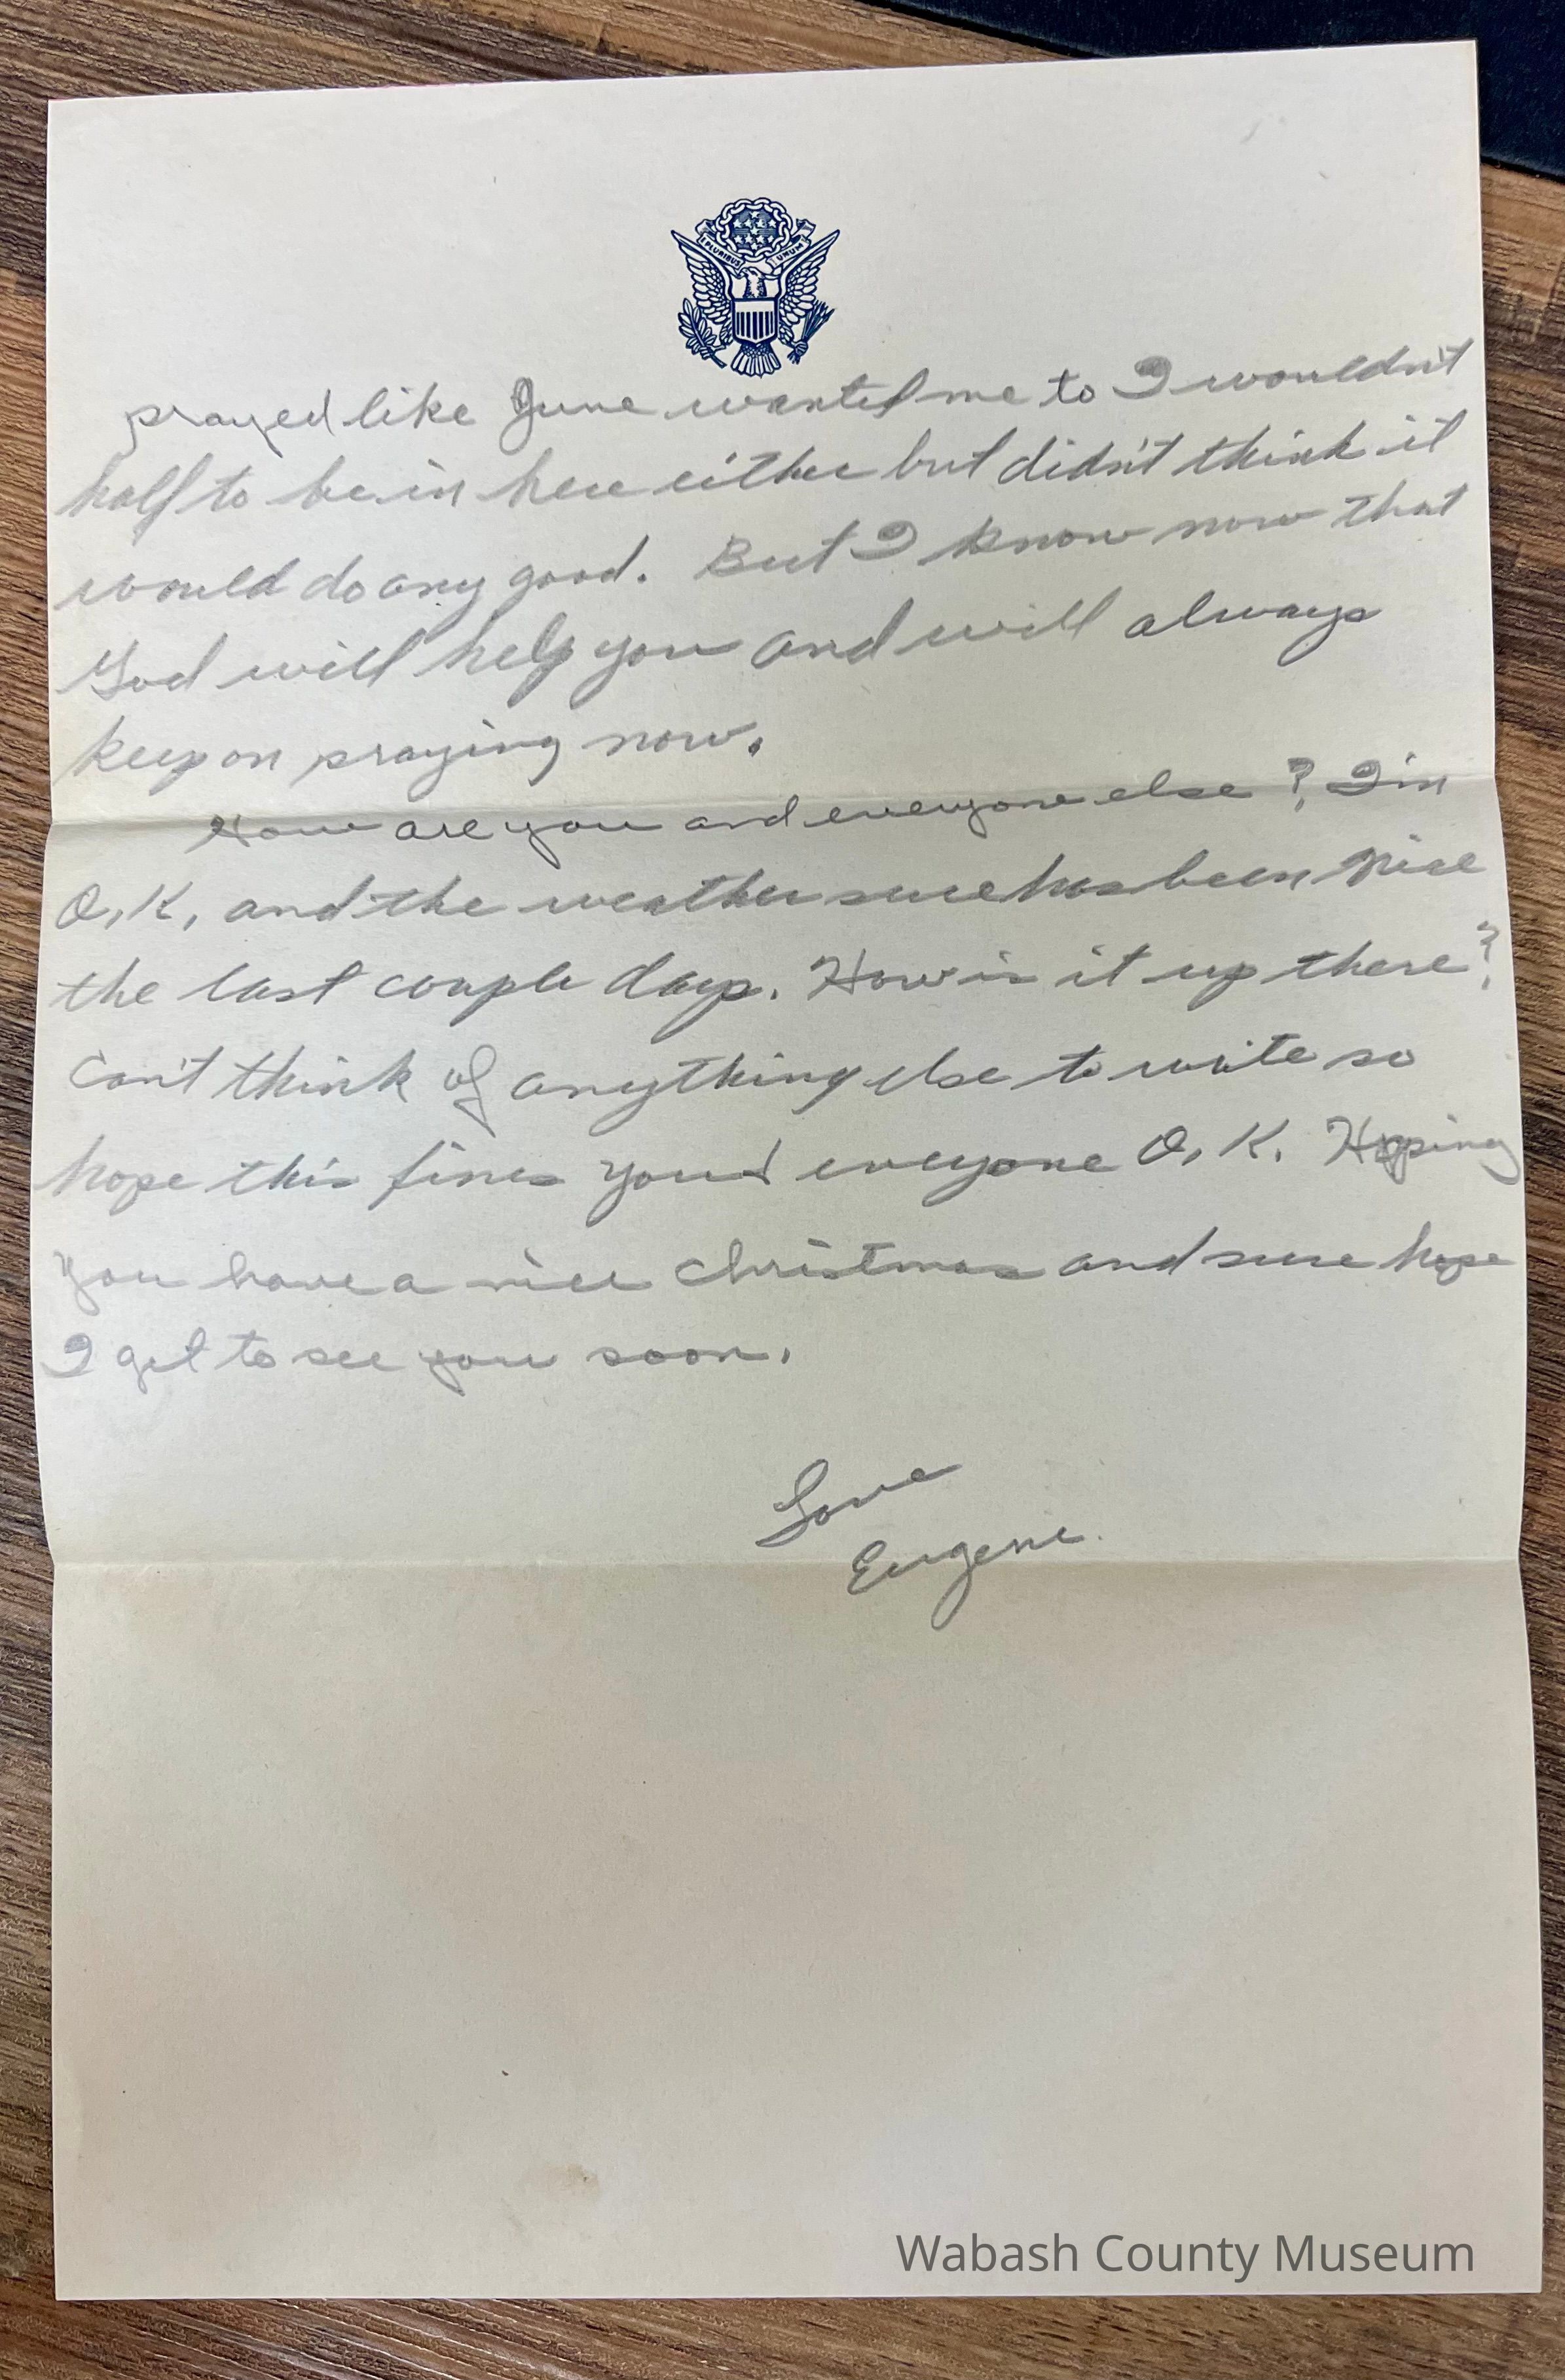 E PLURIBUS UNUM
prayed like June wanted me to I wouldn't
half to be in here either but didn't think it
would do any good. But I know now that
God will help you and will always
keep on praying now.
How are you and everyone else? I'm
O.K, and the weather sure has been nice
the last couple days. How is it up there?
Can't think of anything else to write so
hope this fines you & everyone O.K. Hoping
you have a nice Christmas and sure hope
I get to see you soon.
Love
Eugene.
Wabash County Museum